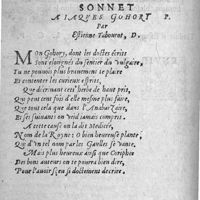 SONNET
A IAQVES GOHORY P.
Par
Estienne Tabourot, D.
MOn Gohory, dont les doctes écrits
Sont esloignés du sentier du vulgaire,
Tu ne pouvois plus bravement te plaire
Et contenter les curieux esprits,
Que d'écrivant cest' herbe de haut pris,
Qui peut cent fois d'elle mesme plus faire,
Que tout cela que dans l'Anabazaire,
Et ses suivans on void iamais compris.
A ceste cause on la dit Medicée,
Nom de la Royne: O bien heureuse plante,
Qui d'un tel nom par les Gaulles se vante.
Mais plus heureux ainsi que Coriphée
Des bons auteurs on te pourra bien dire,
Pour l'avoir sceu si doctement décrire.